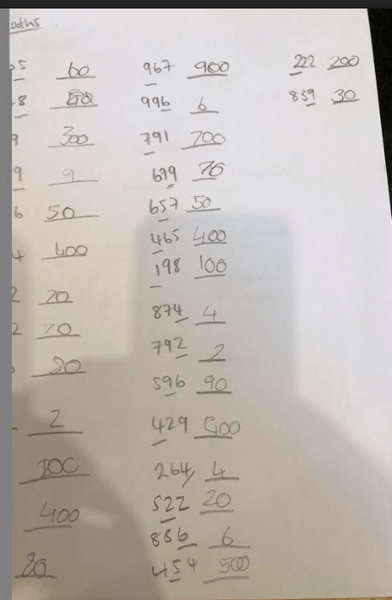 aths
5 60
8
9 300
9 9
6 50
4 400
2 20
2 70
20
2
100
400
20
967 900
996 6
791 700
679 70
657 50
465 400
198 100
874 4
792 2
596 90
429 400
264 4
522 20
886 6
454 500
222 200
839 30